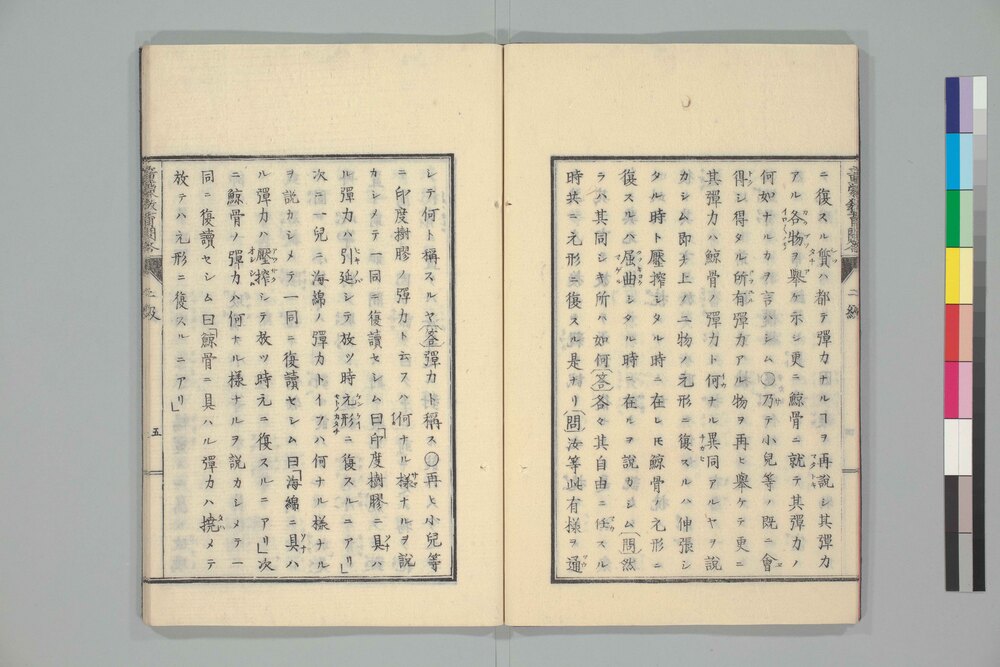 ニ復スル質ハ都テ彈力ナルヿヲ再說シ其彈力
アル各物ヲ舉ケ示シ更ニ鯨骨ニ就テ其彈力ノ
何如ナルカヲ言ハシム〇乃テ小兒等ノ既ニ會
得シ得タル所有彈力アル物ヲ再ヒ舉ケテ更ニ
其彈力ハ鯨骨ノ彈力ト何ナル異同アルヤヲ說
カシム即チ上ノ二物ノ元形ニ復スルハ伸張シ
タル時ト壓搾シタル時ニ在レ𪜈鯨骨ケ元形ニ
復スルハ屈曲シタル時ニ在ルヲ說カシム〔問〕然
ラハ其同シキ所ハ如何〔答〕各々其自由ニ任スル
時共ニ元形ニ復スル是ナリ〔問〕汝等此有樣ヲ通
シテ何ト稱スルヤ〔答〕彈力ト稱ス〇再ヒ小兒等
ニ印度樹膠ノ彈力ト云フハ何ナル樣ナルヲ說
カシメテ一同ニ復讀セシム曰「印度樹膠ニ具ハ
ル彈力ハ引延シテ放ツ時元形ニ復スルニアリ」
次ニ一兒ニ海綿ノ彈力トイフハ何ナル樣ナル
ヲ說カシメテ一同ニ復讀セシム曰「海綿ニ具ハ
ル彈力ハ壓搾シテ放ツ時元ニ復スルニアリ」次
ニ鯨骨ノ彈力ハ何ナル樣ナルヲ說カシメテ一
同ニ復讀セシム曰「鯨骨ニ具ハル彈力ハ撓メテ
放テハ元形ニ復スルニアリ」
五